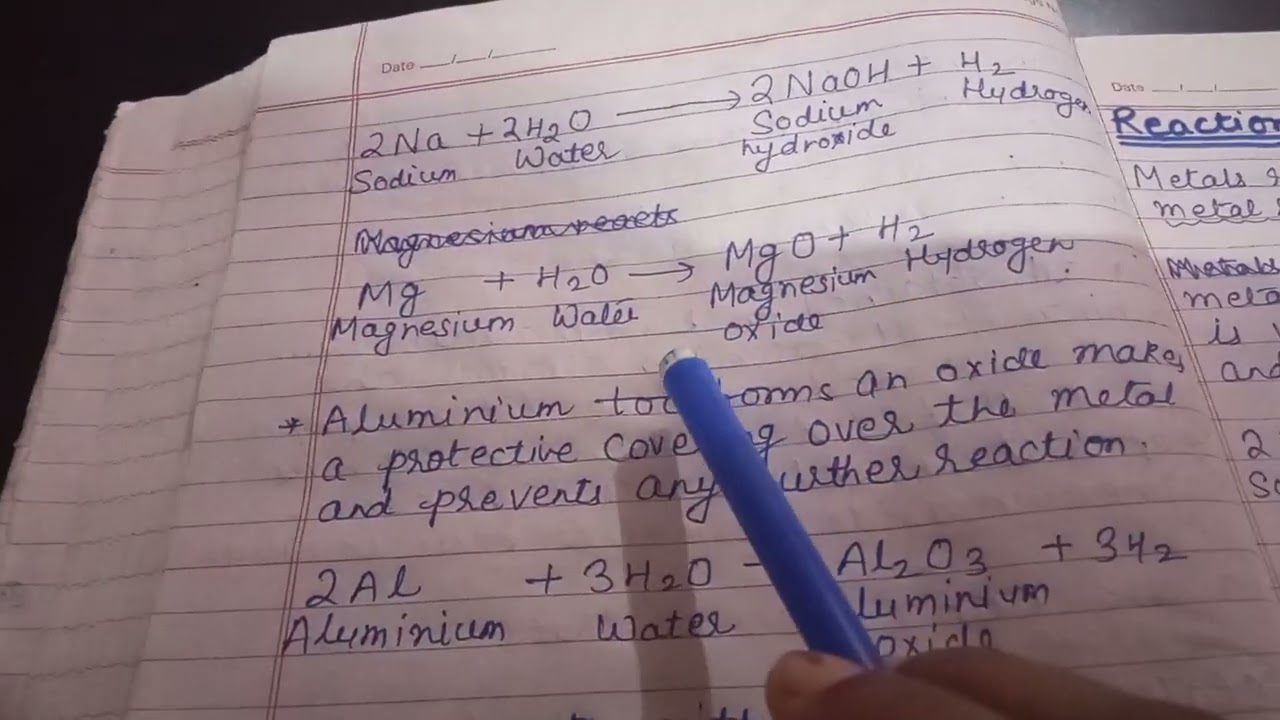 Date __/__/____
2Na + 2H2O ⟶ 2NaOH + H2
Sodium Water Sodium hydroxide Hydrogen
Magnesium reacts
Mg + H2O ⟶ MgO + H2
Magnesium Water Magnesium oxide Hydrogen
* Aluminium too forms an oxide makes
a protective covering over the metal
and prevents any further reaction.
2Al + 3H2O Al2O3 + 3H2
Aluminium Water luminium oxide
Date __/__/____
Reaction
Metals
metal
Metals
meta
is
and
2
So